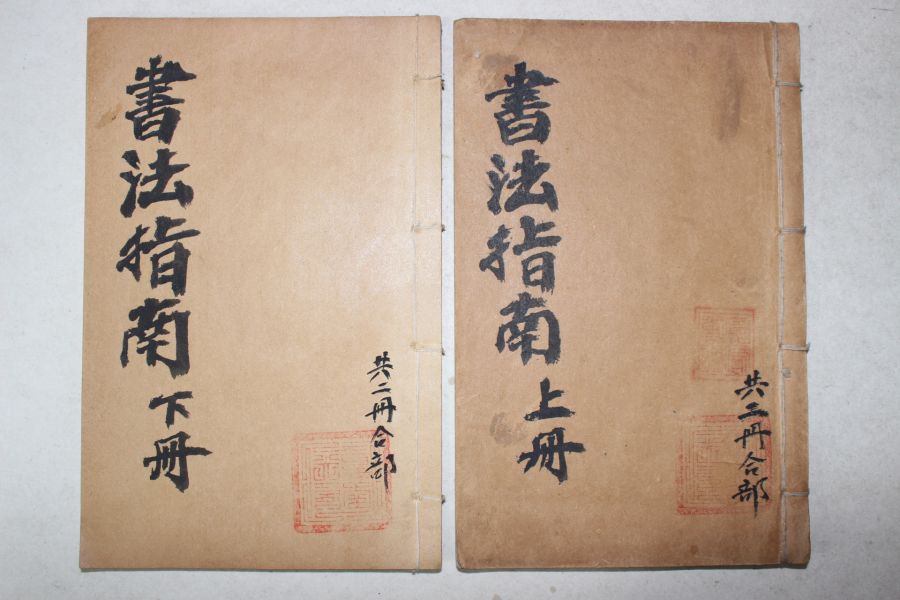 書法指南 下冊
共二冊合部
書法指南 上冊
共二冊合部